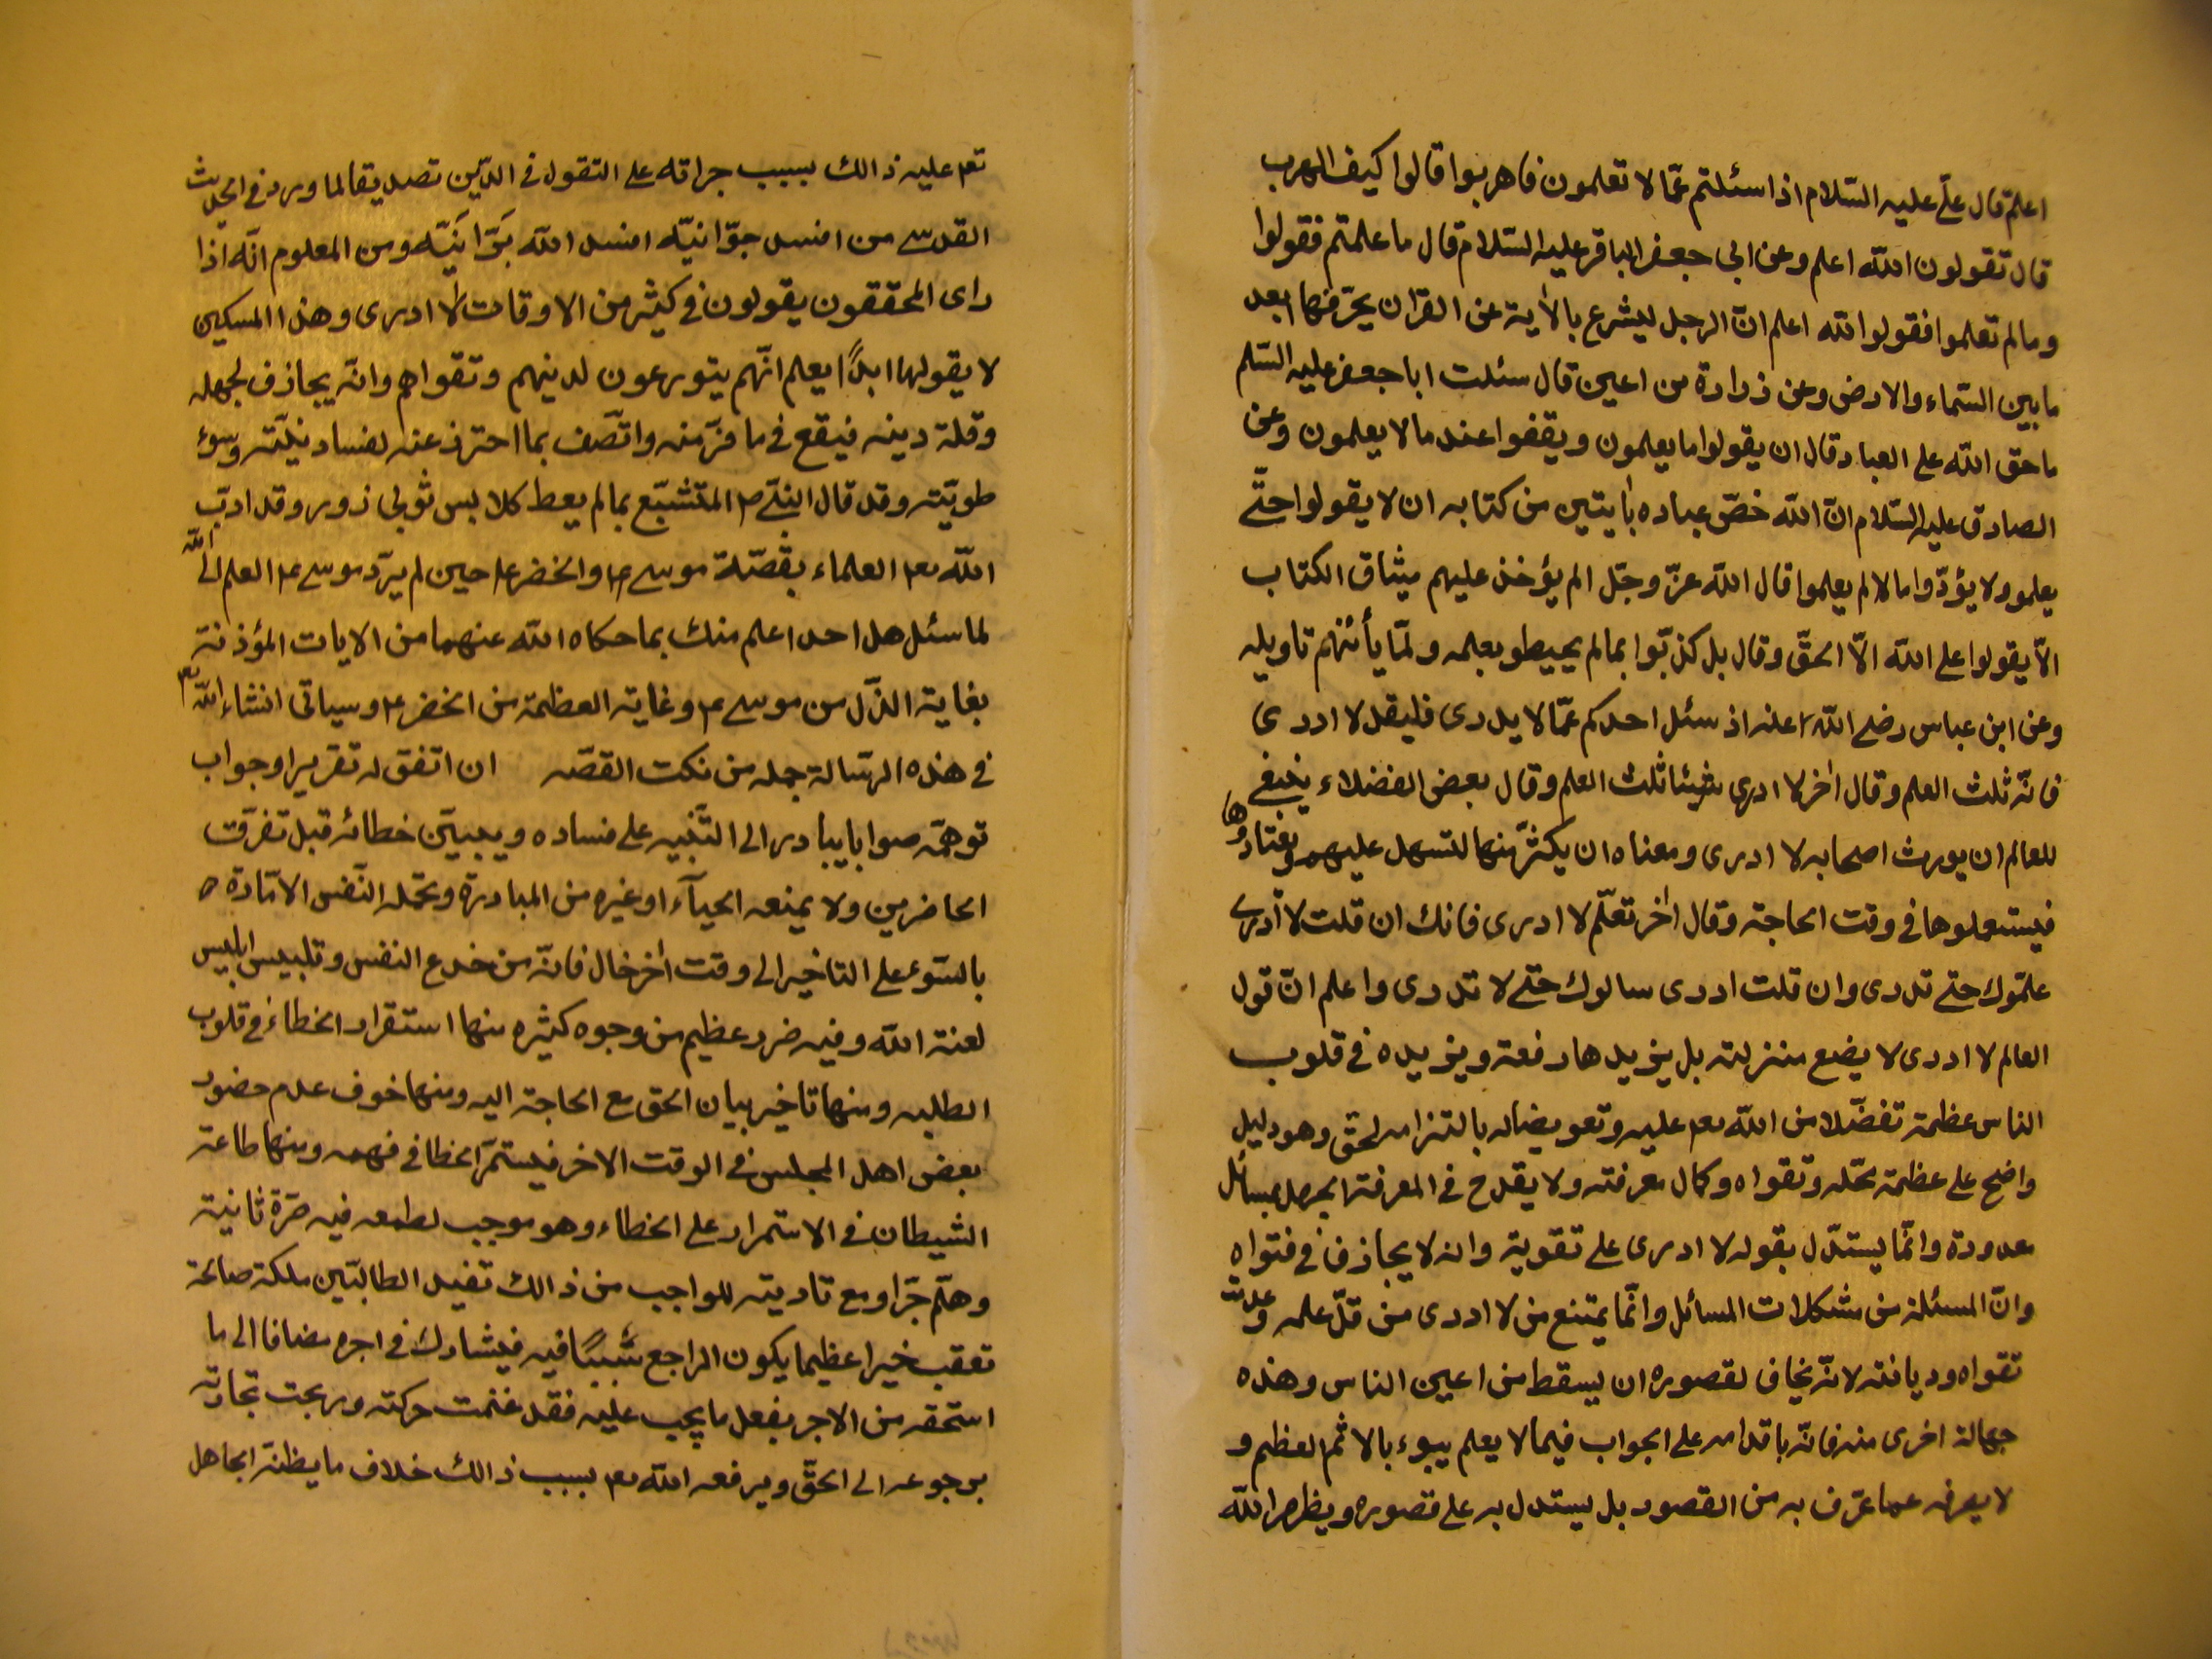 اعلم قال علّي عليه السّلام اذا سئلتم عمّا لا تعلمون فاهربوا قالوا كيف الهرب
قال تقولون اللّه اعلم وعن ابي جعفر الباقر عليه السّلام قال ما علمتم فقولوا
وما لم تعلموا فقولوا اللّه اعلم انّ الرجل ليشرع بالاية عن القران يخرّ فيها ابعد
ما بين السّماء والارض وعن زرارة من اعين قال سئلت ابا جعفر عليه السّلم
ما حق اللّه على العباد قال ان يقولوا ما يعلمون ويقفوا عند ما لا يعلمون وعن
الصادق عليه السّلام انّ اللّه خصّ عباده بايتين من كتابه ان لا يقولوا حتّى
يعلمو ولا يؤدّوا مالا لم يعلموا قال اللّه عزّ وجّل الم يؤخذ عليهم ميثاق الكتاب
الّا يقولوا على اللّه الّا الحقّ وقال بل كذّبوا بمالم يحيطو بعلمه ولمّا يأتهم تاويله
وعن ابن عباس رضي اللّه عنه اذ سئل احدكم عمّا لا يدرى فليقل لا ادرى
فانّه ثلث العلم وقال اخر لا ادرى ثلث العلم وقال بعض الفضلاء ينبغي
للعالم ان يورث اصحابه لا ادرى ومعناه ان يكثّر منها لتسهل عليهم ويعتادوها
فيستعملوها في وقت الحاجة وقال اخر تعلّم لا ادرى فانك ان قلت لا ادرى
علّموك حتّى تدرى وان قلت ادرى سالوك حتّى لا تدرى واعلم انّ قول
العالم لا ادرى لا يضع منزلته بل يزيدها رفعة ويزيده في قلوب
الناس عظمة تفضّلا من اللّه تعم عليه وتعويضا له بالتزامه لحقّ وهو دليل
واضح على عظمة محّله وتقواه وكمال معرفته ولا يقدح في المعرفة الجهل بمسائل
معدودة وانّما يستدّل بقوله لا ادرى على تقويه وانه لا يجازف في فتواه
وانّ المسئلة من مشكلات المسائل وانّما يمتنع من لا ادرى من قلّ علمه وعدمت
تقواه وديانته لانّه يخاف لقصوره ان يسقط من اعين الناس وهذه
جهالة اخرى منه فانّه باقدامه على الجواب فيما لا يعلم يبوء بالاثم العظيم و
لا يصرفه عما عرّف به من القصور بل يستدل به على قصوره ويظهر اللّه
تعم عليه ذالك بسبب جراته على التقول في الدّين تصديقا لما ورد في الحديث
القدسي من افسد جوّانيّه افسد اللّه برّانيّه ومن المعلوم انّه اذا
راى المحققون يقولون في كثير من الاوقات لا ادرى وهذا المسكين
لا يقولها ابدًا يعلم انّهم يتورعون لدينهم وتقواهم وانّه يجازف لجهله
وقلة دينه فيقع في ما فرّ منه واتّصف بما احترز عنه لفساد نيّته وسوء
طويّته وقد قال النبّي ص المتشبّع بما لم يعط كلابس ثوبي زور وقد ادّب
اللّه تعم العلماء بقصّة موسى ع والخضر ع حين لم يرّد موسى ع العلم الى اللّه
لما سئل هل احد اعلم منك بما حكاه اللّه عنهما من الايات المؤذنة
بغاية الذّل من موسى ع وغاية العظمة من الخضر ع وسياتى انشاء اللّه تعم
في هذه الرّسالة جمله من نكت القصّه ان اتفق له تقريرا وجواب
توهمّه صوابا يبادر الى التّنبيه على فساده ويبيّن خطائه قبل تفرّق
الحاضرين ولا يمنعه الحيآء او غيره من المبادرة وتحمّله النّفس الامّارة
بالسّوء على التاخير الى وقت اخر خال فانّه من خدع النفس وتلبيس ابليس
لعنة اللّه وفيه ضرر عظيم من وجوه كثيره منها استقرار الخطاء في قلوب
الطلبه ومنها تاخير بيان الحق مع الحاجة اليه ومنها خوف عدم حضور
بعض اهل المجلس في الوقت الاخر فيستمّر الخطا في فهمه ومنها طاعة
الشيطان في الاستمرار على الخطاء وهو موجب لطمعه فيه مرّة ثانية
وهلّم جّرا ومع تاديته للواجب من ذالك تفيد الطالبّين ملكة صالحة
تعقب خيرا عظيما يكون الراجع سّببًا فيه فيشارك في اجره مضافا الى ما
استحقه من الاجر بفعل ما يجب عليه فقد غنمت حركته وربحت تجارته
برجوعه الى الحقّ ويرفعه اللّه تعم بسبب ذالك خلاف ما يظنّه الجاهل